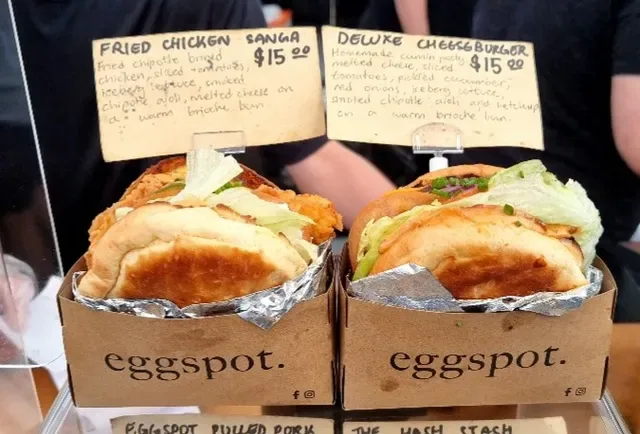 FRIED CHICKEN SANGA
$15 00
Fried chipotle brined
chicken, sliced tomatoes,
iceberg lettuce, smoked
chipotle aioli, melted cheese on
a warm brioche bun
DELUXE CHEESEBURGER
$15 00
Homemade cumin patty
melted cheese, sliced
tomatoes, pickled cucumber,
red onions, iceberg lettuce,
smoked chipotle aioli, and ketchup
on a warm brioche bun.
eggspot.
eggspot.
EGGSPOT PULLED PORK
THE HASH STACH